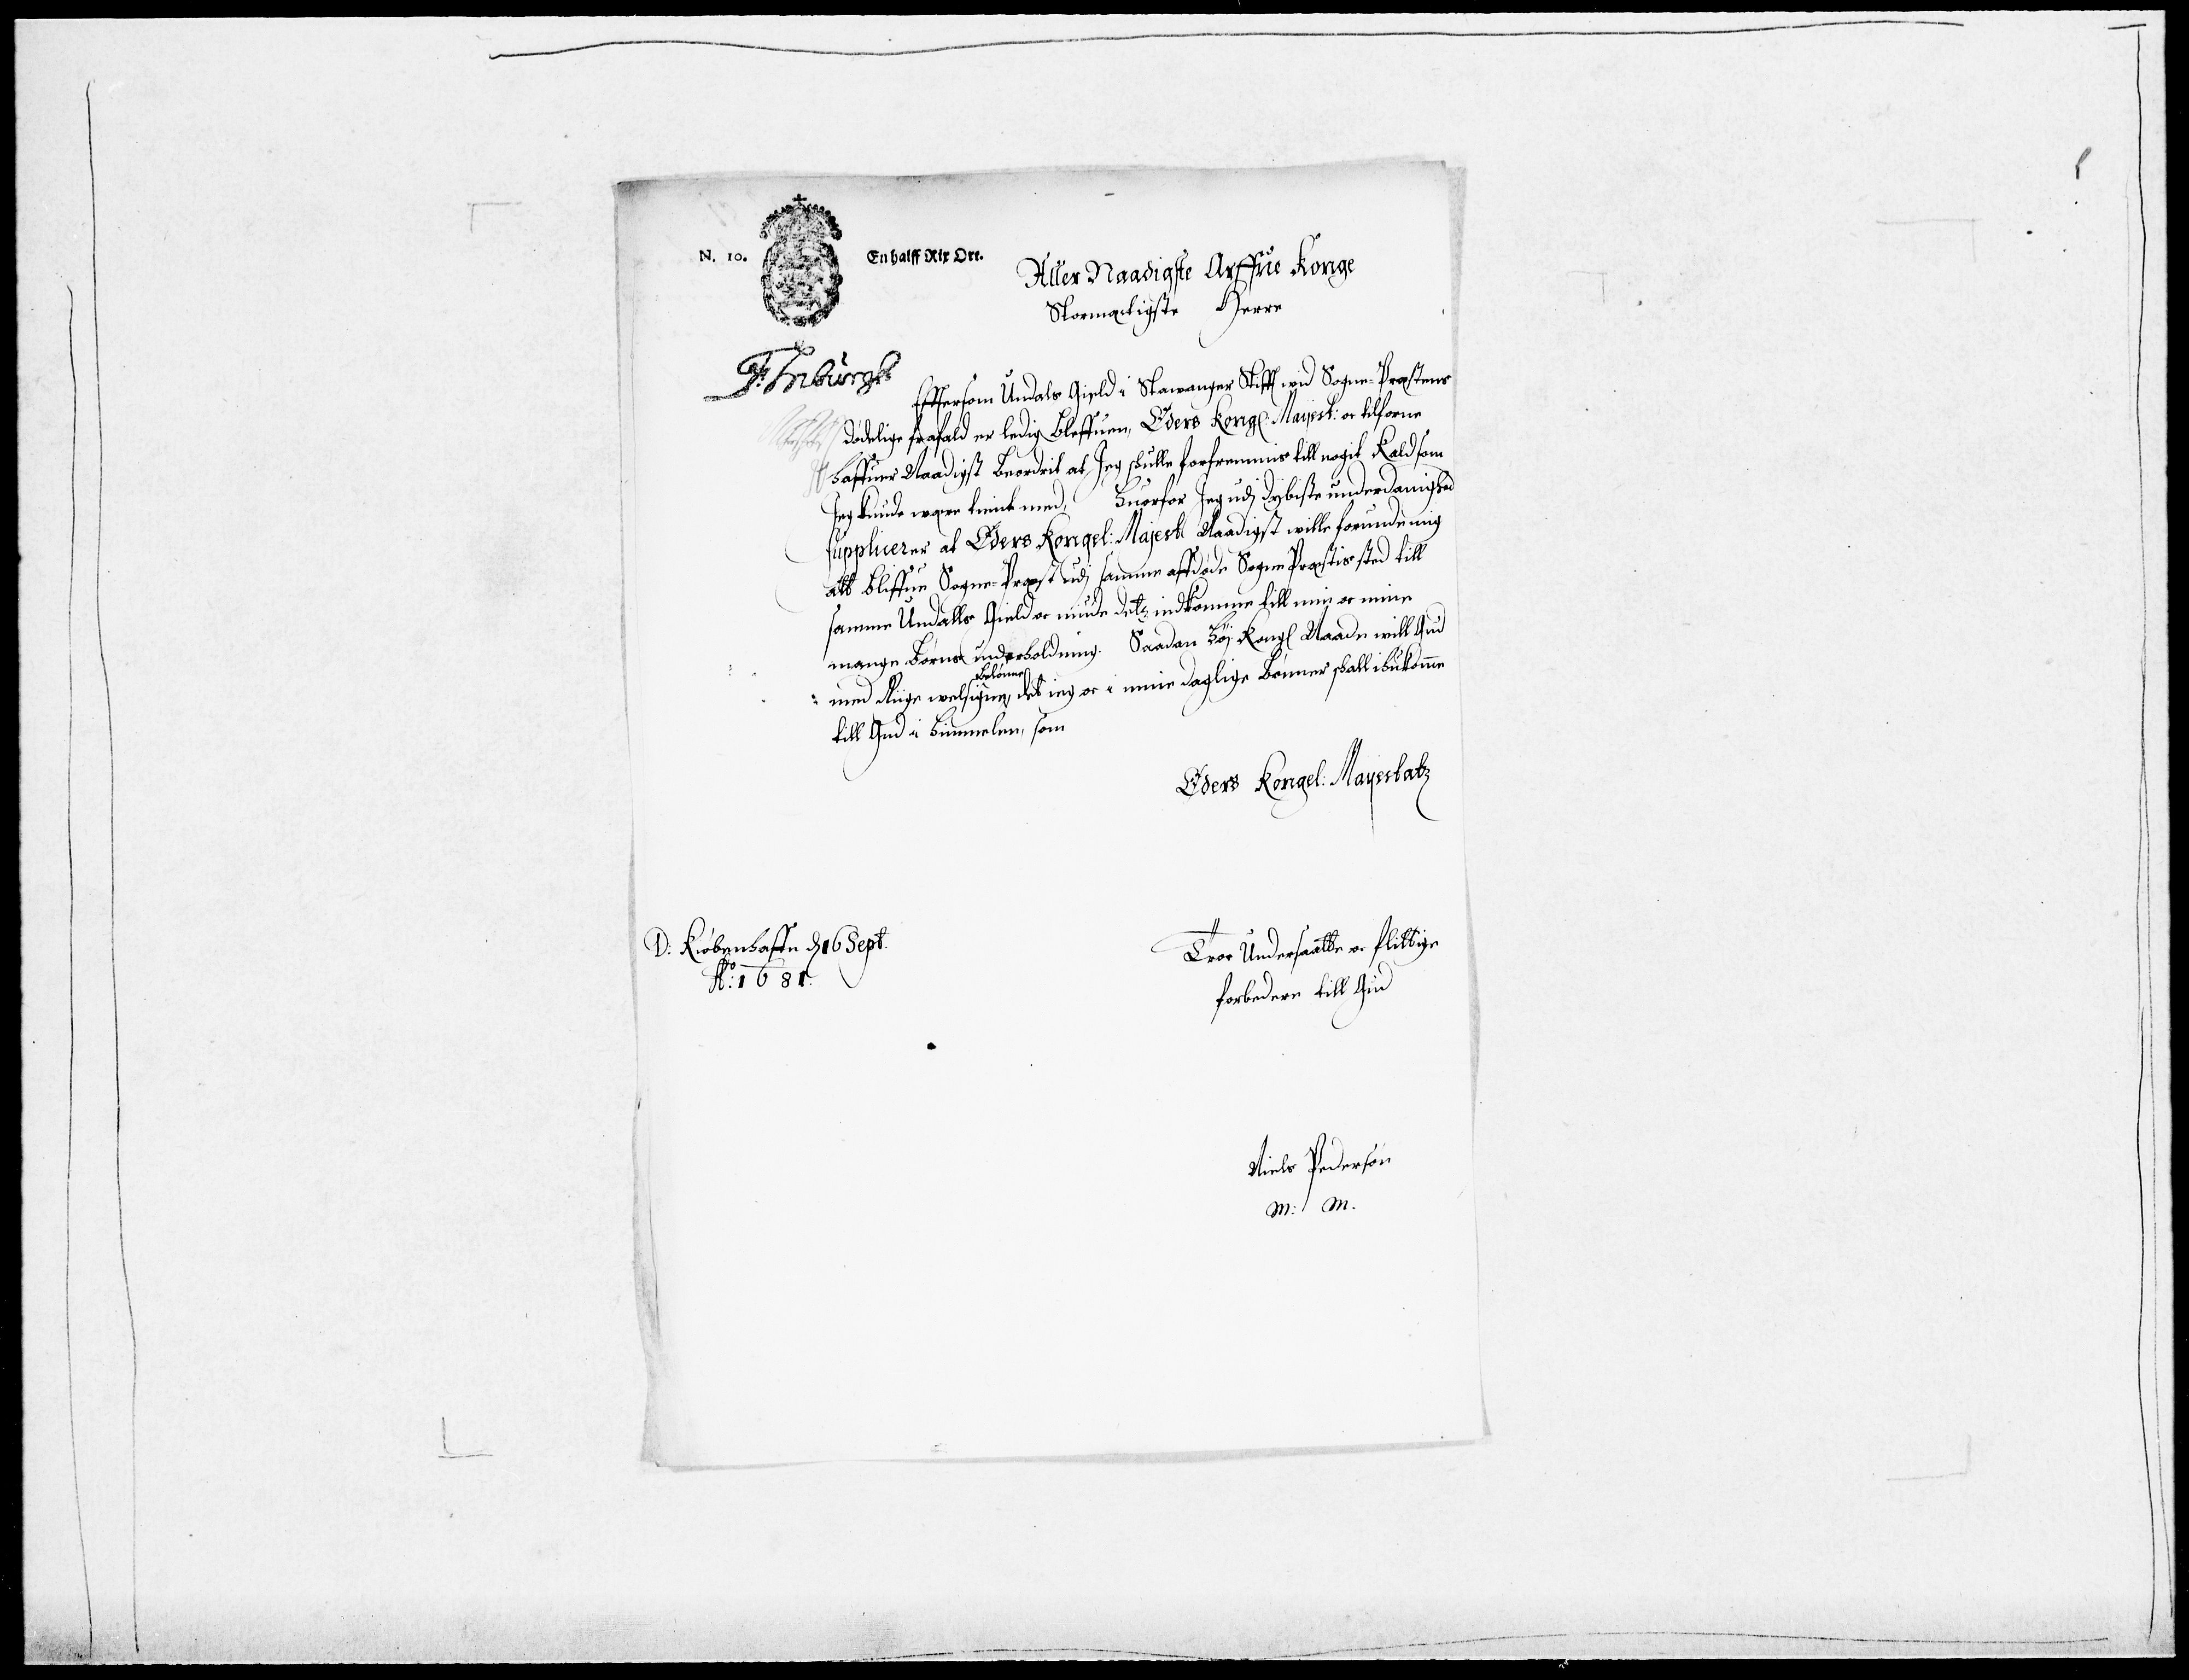 N. 10. En halff Rix Ort.
Aller Naadigste Arffue Konge
Stormectigste Herre
Efftersom Undals Gield i Stawanger Stifft ved Sogne-Præstens
dødelige frafald er ledig bleffuen, Eders Kongl: Mayest: oc tilforne
haffuer Naadigst beordrit at Jeg skulle forfremmis till nogit Kald som
Jeg kunde wære tient med, Huorfor Jeg udj dybiste underdanighed
supplicerer at Eders Kongel: Majest Naadigst wille forunde mig
att bliffue Sogne-Præst udj samme affdøde Sogne Præstis sted till
samme Undalls Gield oc niude detz indkomme till min oc mine
mange børns underholdning. Saadan høj Kongl Naade will Gud
belønne
med Riige welsignelse, det ieg oc i mine daglige bønner skall ihukomme
till Gud i himmelen, som
Eders Kongel: Mayestatz
D: Kiøbenhaffn d 16 Sept.
Ao: 1681.
Troe Undersaatte oc flittige
forbedere till Gud
Niels Pedersøn
M: M.